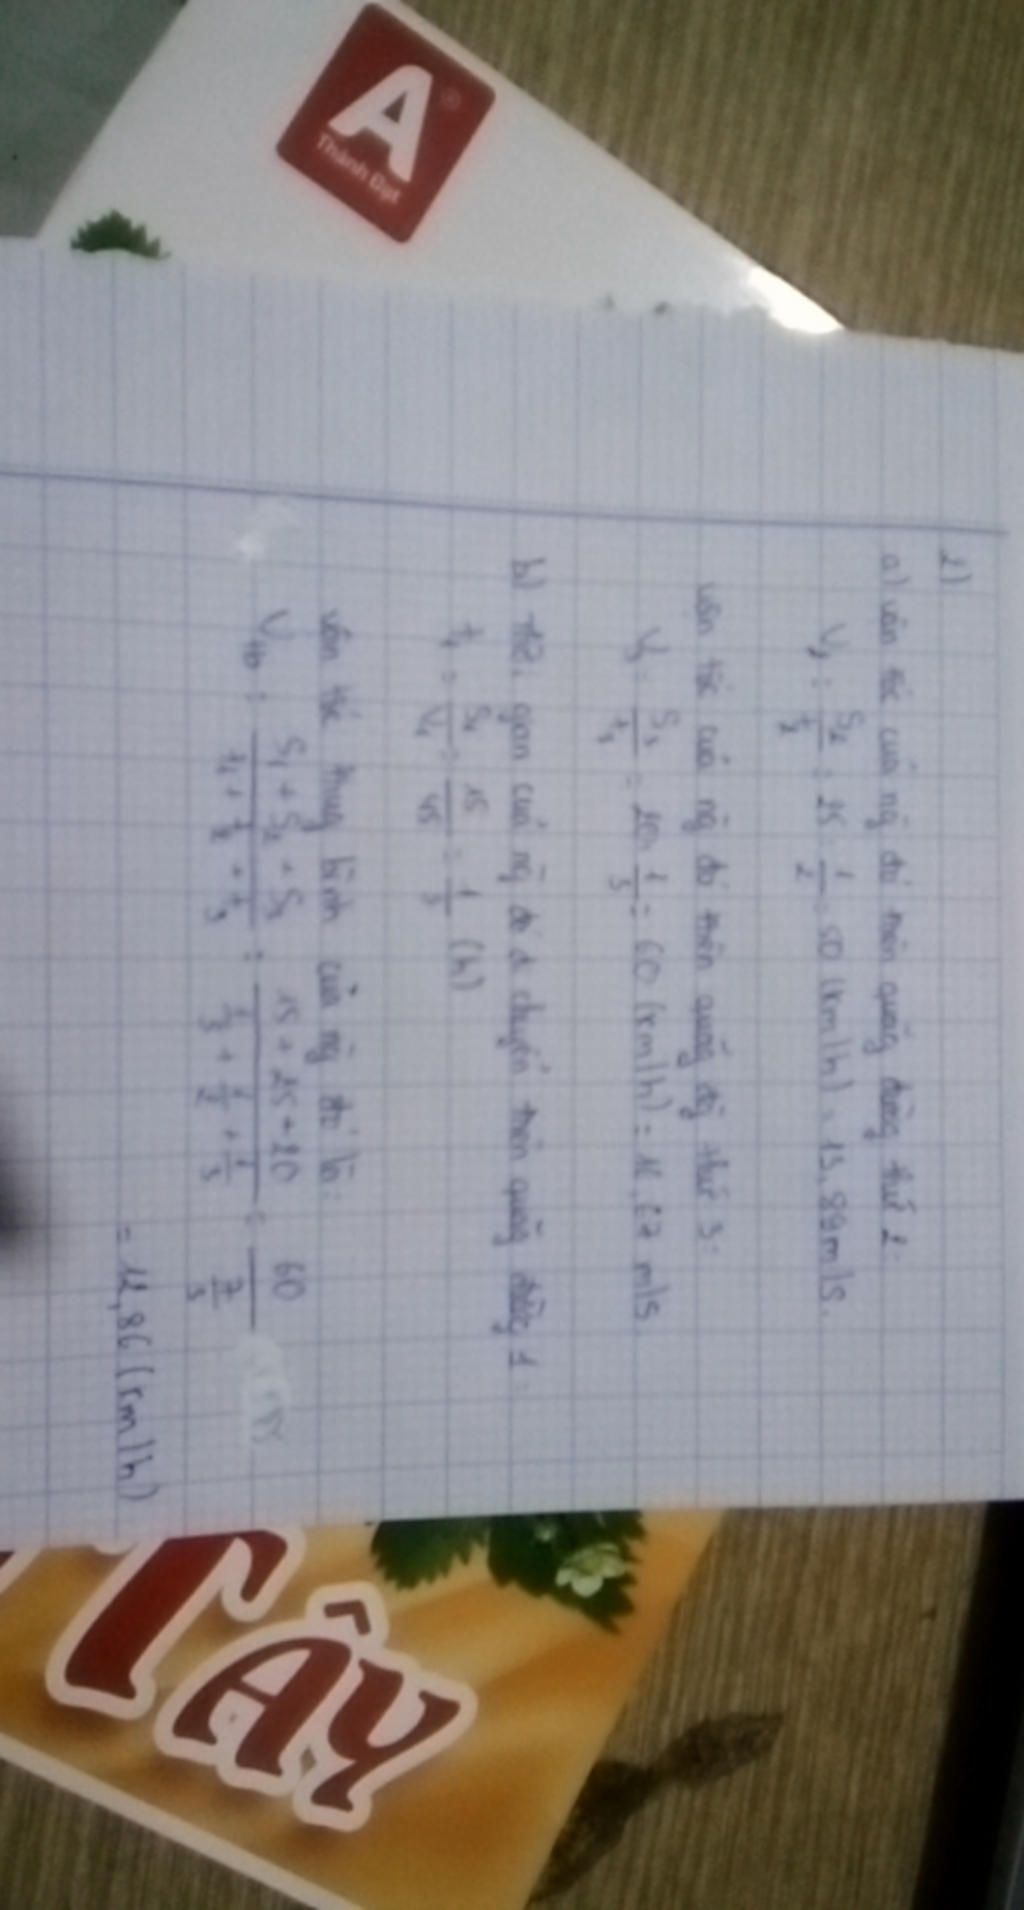 A
Thành Đạt
1)
a) vận tốc của ng đó trên quãng đường thứ 2:
V₂ = S₂/t₂ = 25 : 1/2 = 50 (km/h) = 13,89 m/s.
vận tốc của ng đó trên quãng đg thứ 3:
V₃ = S₃/t₃ = 20 : 1/3 = 60 (km/h) = 16,67 m/s
b) thời gian của ng đó di chuyển trên quãng đường 1:
t₁ = S₁/V₁ = 15/45 = 1/3 (h)
vận tốc trung bình của ng đó là:
Vtb = (S₁ + S₂ + S₃)/(t₁ + t₂ + t₃) = (15 + 25 + 20)/(1/3 + 1/2 + 1/3) = 60/
= 12,86 (km/h)
CÂY